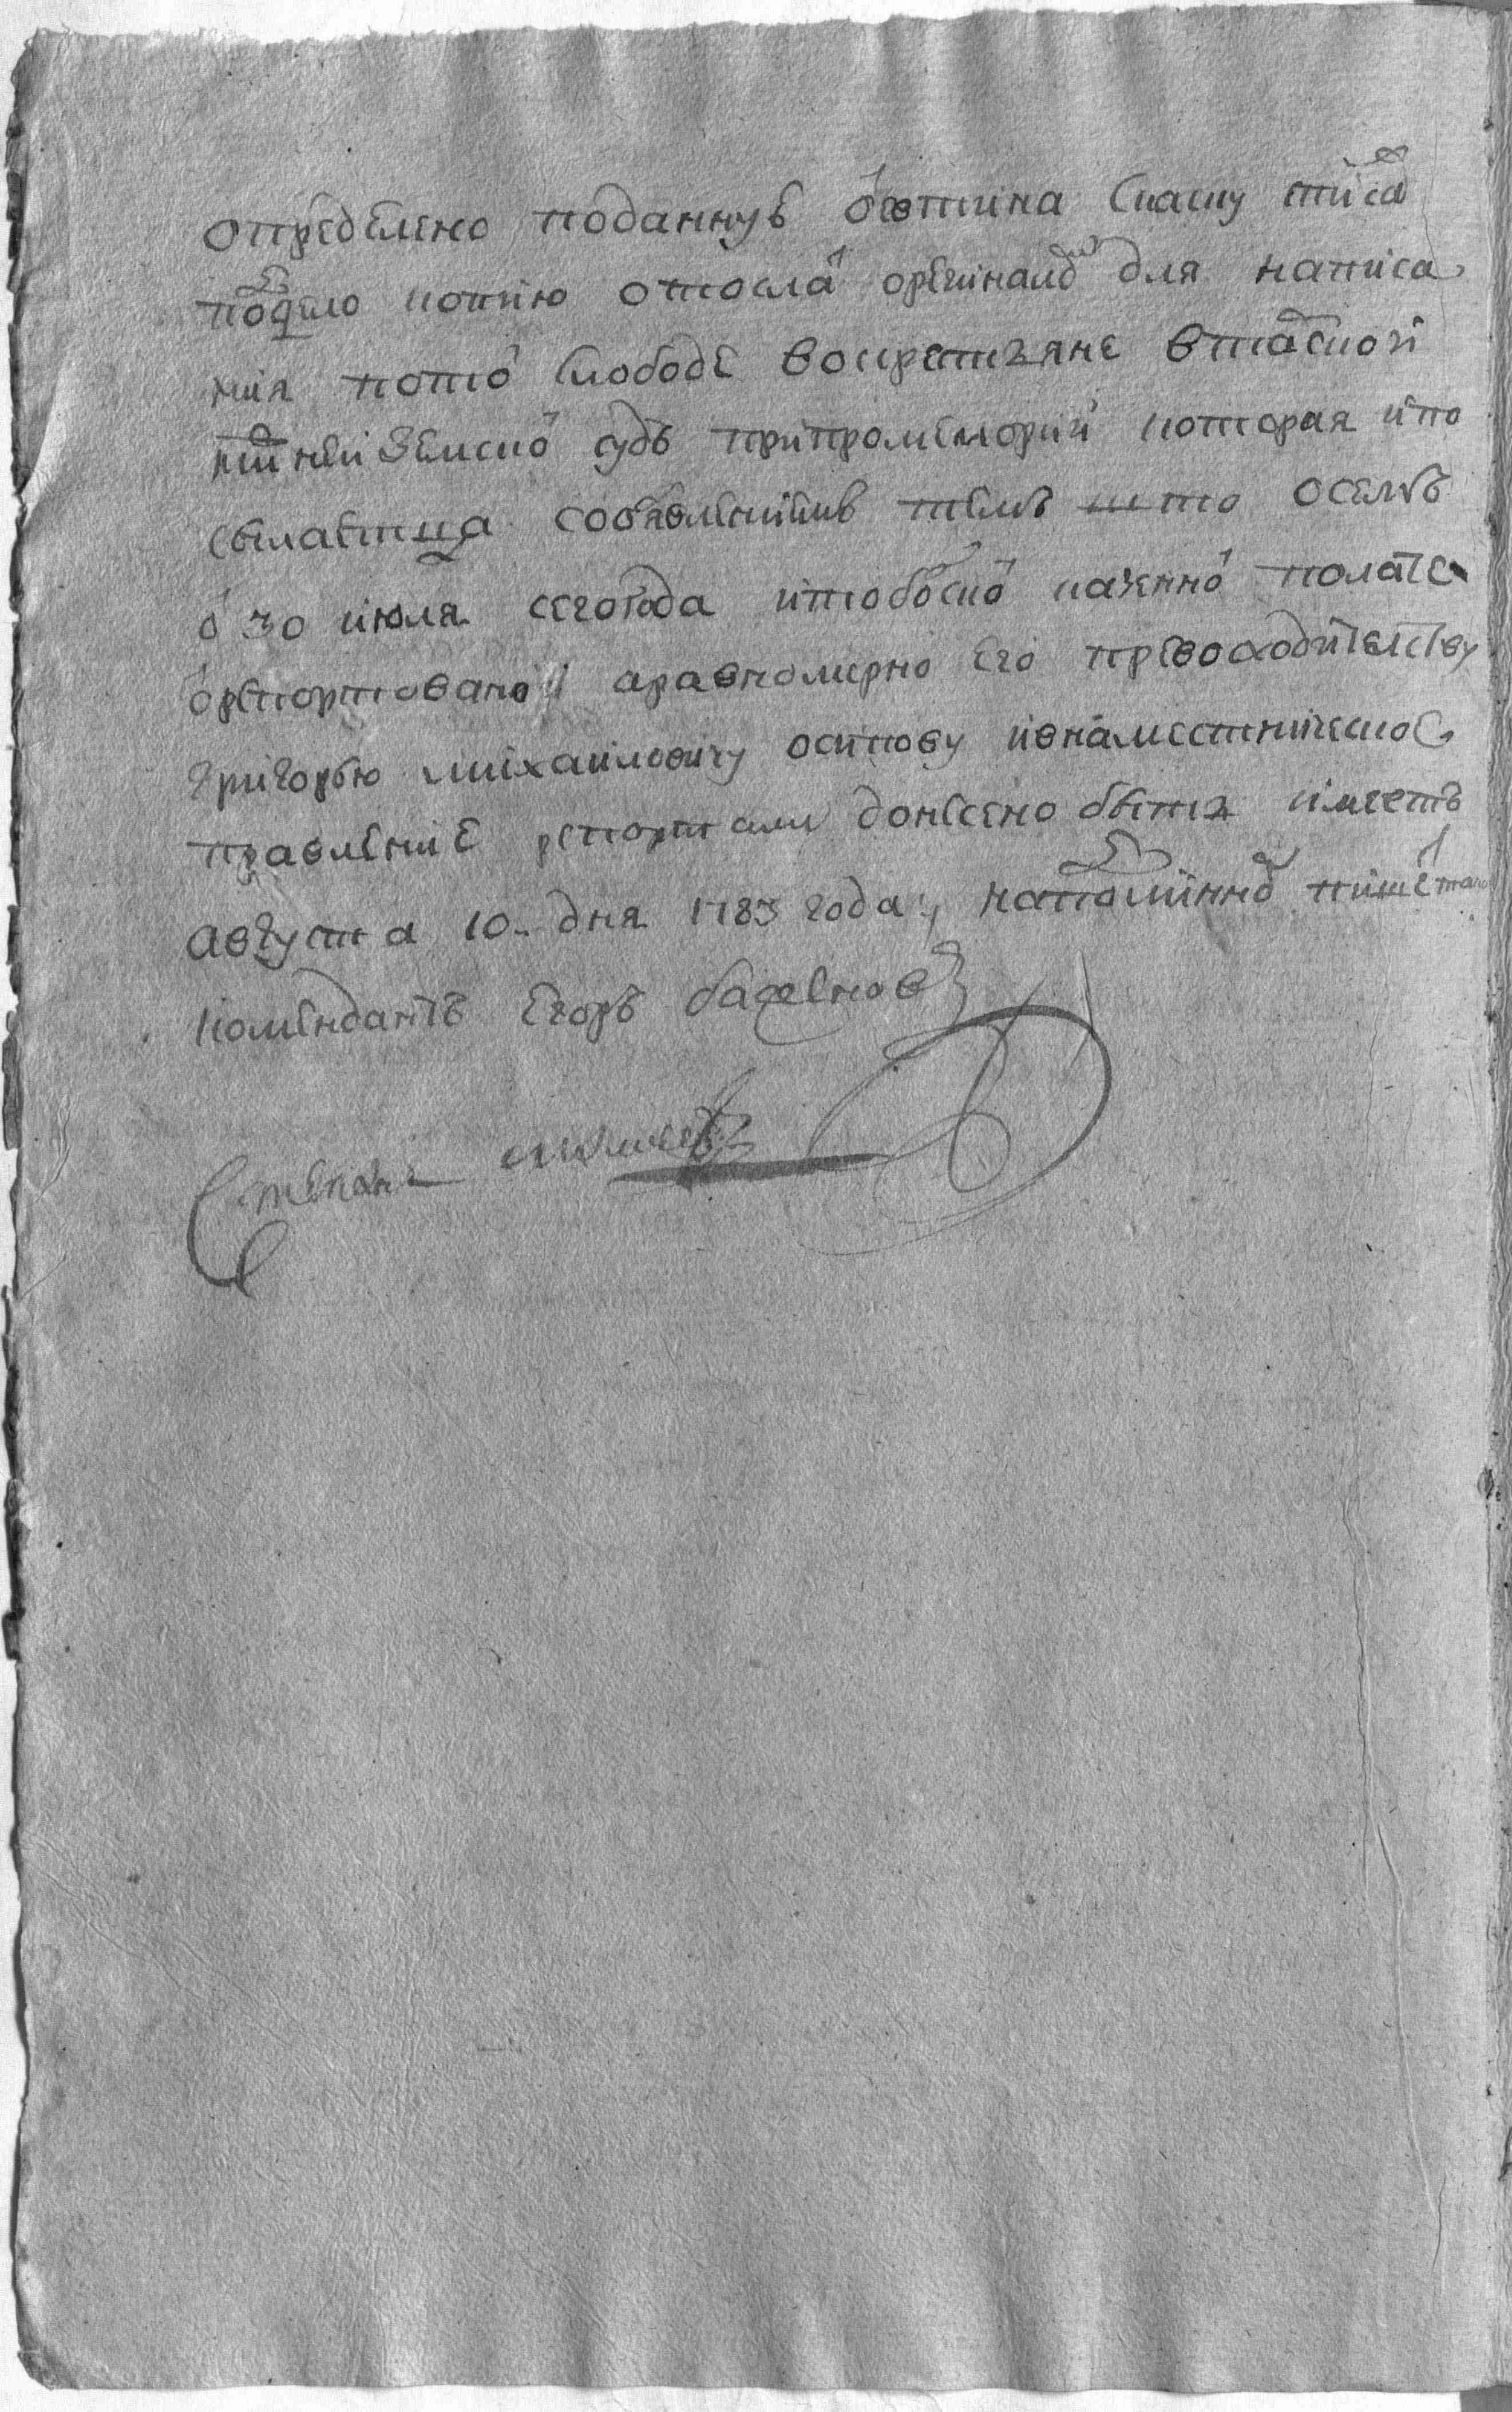 определено поданнуъ о устина скаску списа
подело копию отосла оргинало для написа
ния по то слободе вокрестьяне в тарской
нижнеи земско судъ припромемории которая ипо
сылаетца собявлениимъ темъ што осемъ
о 30 июля сего года итобоско казенно полате
орепортовано аравномерно его превосходителству
григорью михаиловичу осипову ивнаместническое
правление репортами донесено быть имеетъ
августа 10 дня 1783 года наподлинно пише тако
комендантъ егоръ
Степанъ